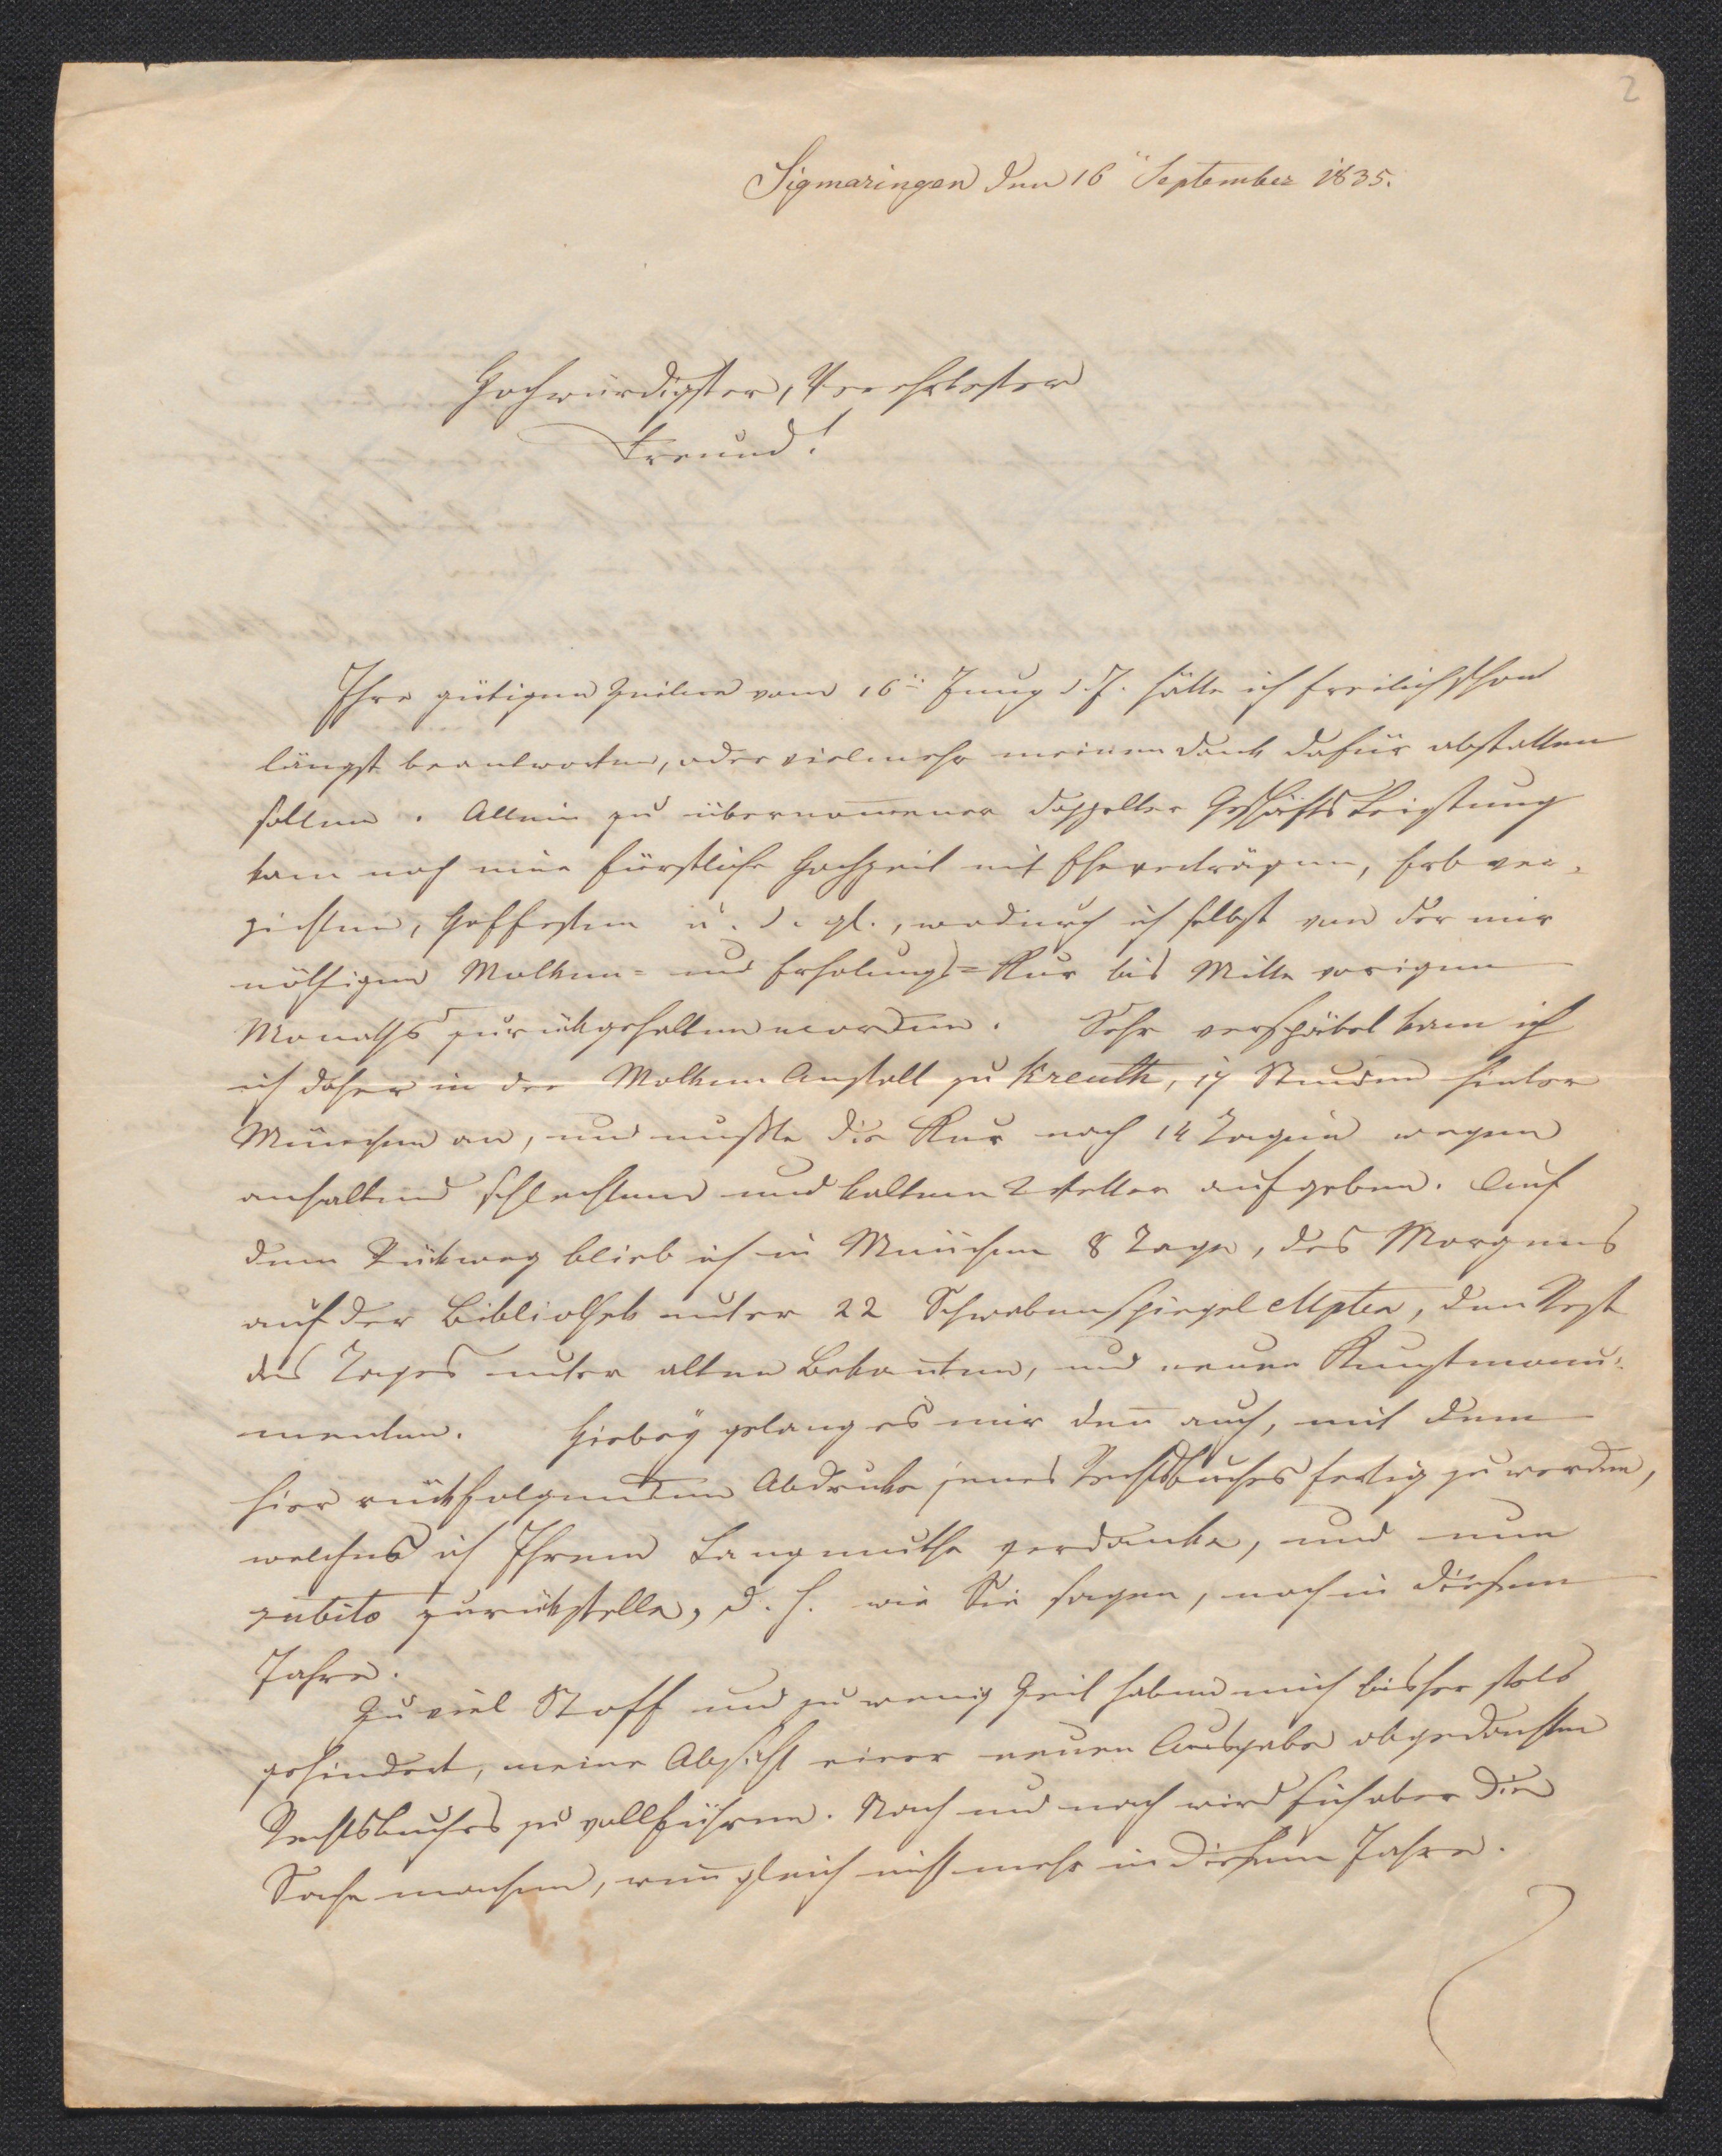 2
Sigmaringen den 16" September 1835.
Hochwürdigster, Verehrtester
Freund!
Ihre gütigen Zeilen vom 16" Juny d. J. hätte ich freilich schon
längst beantworten, oder vielmehr meinen Dank dafür abstatten
sollen. Allein zu übernom̅ener doppelter Geschäfts Leistung
kam noch eine fürstliche Hochzeit mit Eheverträgen, Erbver-
zichten, Hoffesten u. d. gl., wodurch ich selbst von der mir
nöthigen Molken- und Erholungs-Kur bis Mitte vorigen
Monaths zurükgehalten worden. Sehr verspätet kam ich
ich daher in der Molken Anstalt zu Kreuth, 17 Stunden hinter
München an, und mußte die Kur nach 14 Tagen wegen
anhaltend schlechtem und kaltem Wetter aufgeben. Auf
dem Rükweg blieb ich in München 8 Tage, des Morgens
auf der Bibliothek unter 22 Schwabenspiegel Mpten, den Rest
des Tages unter alten Bekan̅ten, und neuen Kunstmonu-
menten. Hiebey gelang es mir den̅ auch, mit dem
hier rükfolgenden Abdruke jenes Rechtsbuches fertig zu werden,
welches ich Ihrem Langmuthe verdanke, und nun
subito zurükstelle, d. h. wie Sie sagen, noch in diesem
Jahre.
Zu viel Stoff und zu wenig Zeit haben mich bisher stets
gehindert, meine Absicht einer neuen Ausgabe abgedachten
Rechtsbuches zu vollführen. Nach und nach wird sich aber die
Sache machen, wen̅ gleich nicht mehr in diesem Jahre.